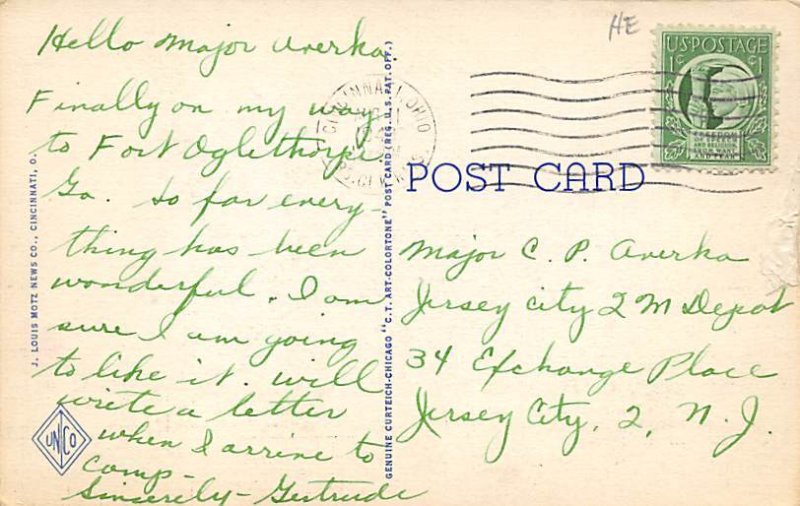 HE
Hello Major Averka,
Finally on my way
to Fort Oglethorpe
Ga. So far every-
thing has been
wonderful. I am
sure I am going
to like it. will
write a letter
when I arrive to
camp-
Sincerely- Gertrude
J. LOUIS MOTZ NEWS CO., CINCINNATI, O.
UNCO
GENUINE CURTEICH-CHICAGO "C.T. ART-COLORTONE" POST CARD (REG. U.S. PAT. OFF.)
CINCINNATI, OHIO
U.S. POSTAGE
1c 1c
FREEDOM
POST CARD
Major C. P. Averka
Jersey City 2 M Depot
34 Exchange Place
Jersey City, 2, N. J.